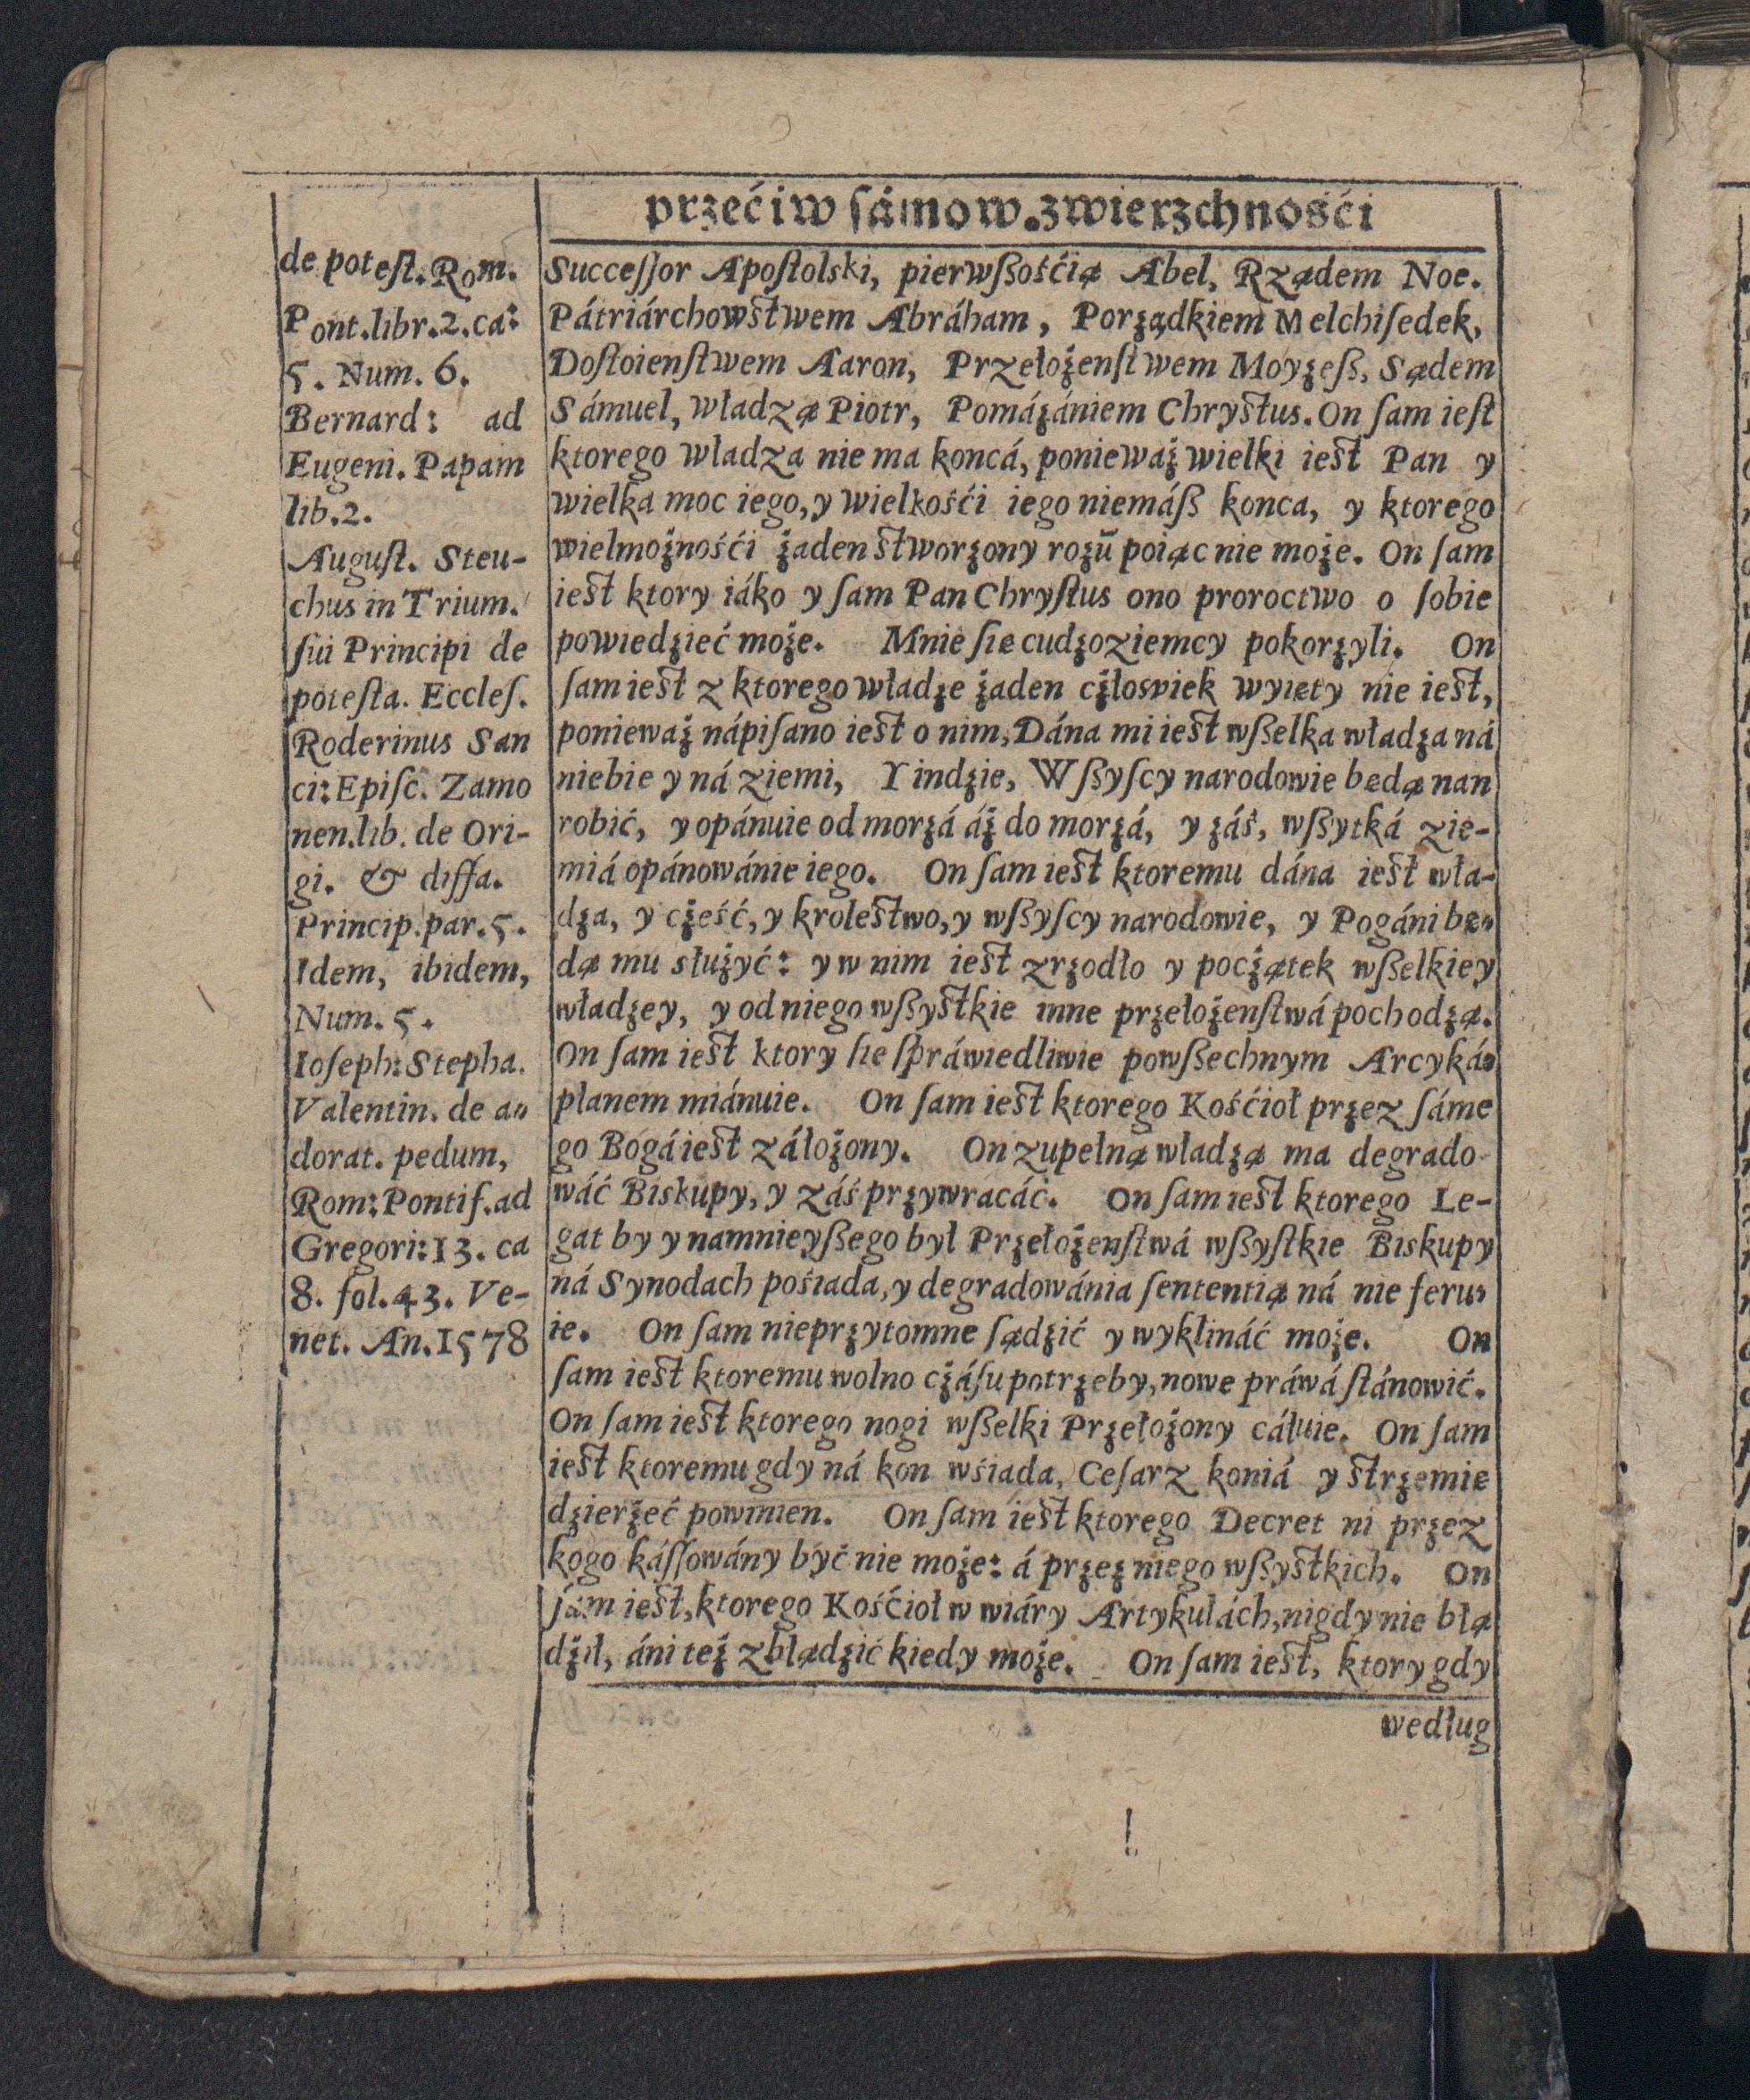 przećiw sámow.zwierzchnośći
de potest. Rom.
Pont.libr.2.ca:
5. Num. 6.
Bernard: ad
Eugeni. Papam
lib.2.
August. Steu-
chus in Trium.
sui Principi de
potesta. Eccles.
Roderinus San
ci: Episc. Zamo
nen.lib. de Ori-
gi. & diffa.
Princip.par.5.
Idem, ibidem,
Num. 5.
Ioseph: Stepha.
Valentin. de a-
dorat. pedum,
Rom: Pontif.ad
Gregori:13. ca
8. fol.43. Ve-
net. An.1578
Successor Apostolski, pierwßośćią Abel, Rządem Noe.
Pátriárchowstwem Abráham, Porządkiem Melchisedek,
Dostoienstwem Aaron, Przełożenstwem Moyzeß, Sądem
Sámuel, władzą Piotr, Pomázániem Chrystus. On sam iest
ktorego władza nie ma koncá, ponieważ wielki iest Pan y
wielka moc iego, y wielkośći iego niemáß konca, y ktorego
wielmożnośći żaden stworzony rozū poiąc nie może. On sam
iest ktory iáko y sam Pan Chrystus ono proroctwo o sobie
powiedzieć może. Mnie się cudzoziemcy pokorzyli. On
sam iest z ktorego władze żaden człowiek wyięty nie iest,
ponieważ nápisano iest o nim, Dána mi iest wßelka władza ná
niebie y ná ziemi, Y indzie, Wßyscy narodowie będą nan
robić, y opánuie od morzá áż do morzá, y záś, wßytká zie-
miá opánowánie iego. On sam iest ktoremu dána iest wła-
dza, y cżeść, y krolestwo, y wßyscy narodowie, y Pogáni bę-
dą mu służyć: y w nim iest zrzodło y pocżątek wßelkiey
władzey, y od niego wßystkie inne przełożenstwá pochodzą.
On sam iest ktory się spráwiedliwie powßechnym Arcyká-
planem miánuie. On sam iest ktorego Kośćioł przez sáme
go Bogá iest záłożony. On zupełną władzą ma degrado
wáć Biskupy, y záś przywracáć. On sam iest ktorego Le-
gat by y namnieyßego był Przełożenstwá wßystkie Biskupy
ná Synodach pośiada, y degradowánia sententią ná nie feru-
ie. On sam nieprzytomne sądzić y wyklináć może. On
sam iest ktoremu wolno cżásu potrzeby, nowe práwá stánowić.
On sam iest ktorego nogi wßelki Przełożony cáłuie. On sam
iest ktoremu gdy ná kon wśiada, Cesarz koniá y strzemie
dzierżeć powinien. On sam iest ktorego Decret ni przez
kogo kássowány być nie może: á przez niego wßystkich. On
sam iest, ktorego Kośćioł w wiáry Artykulách, nigdy nie błą
dził, áni też zbłądzić kiedy może. On sam iest, ktory gdy
według